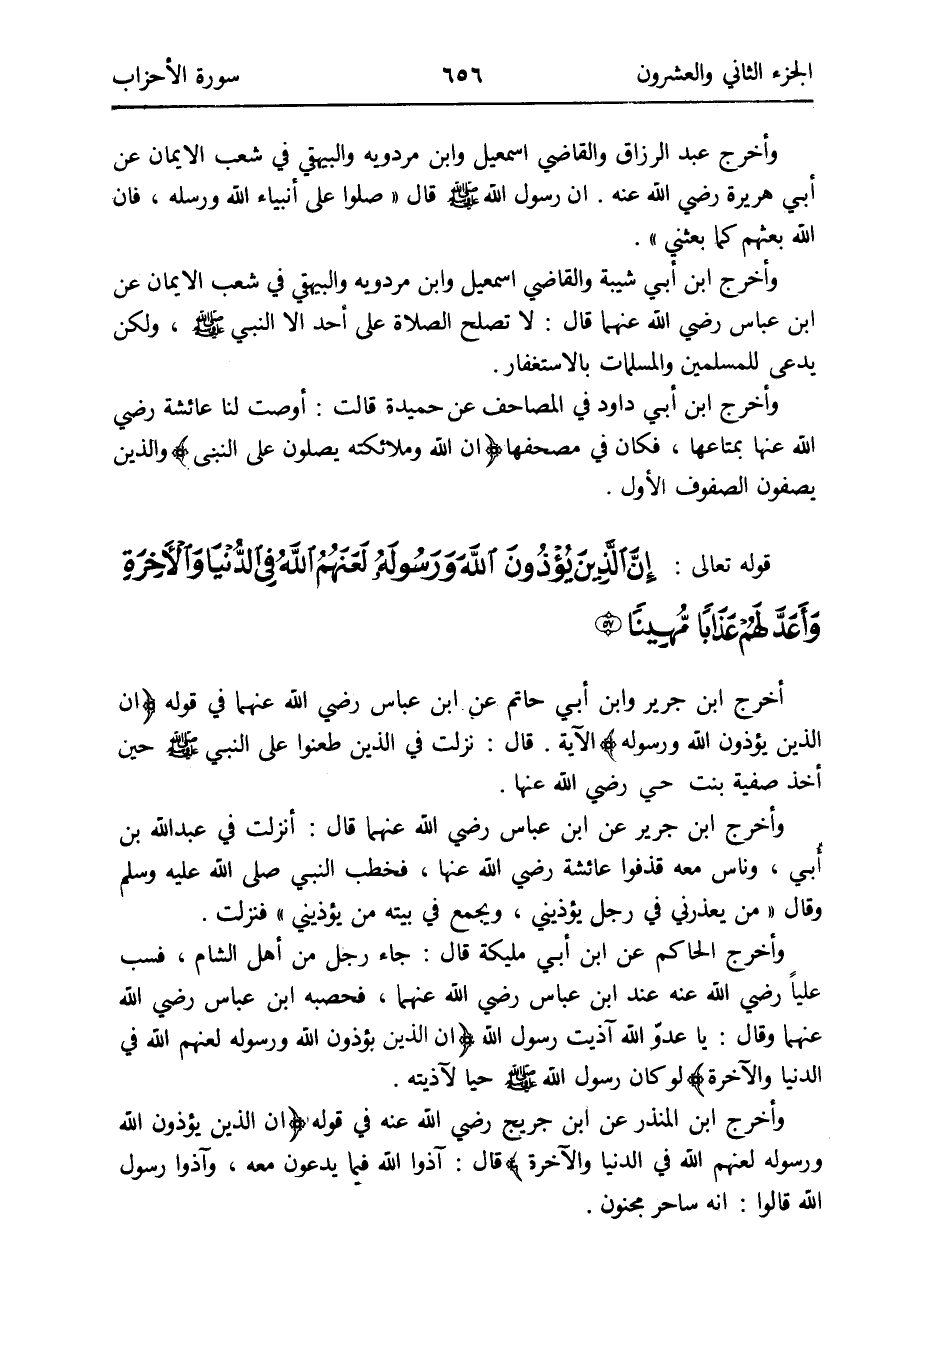 الجزء الثاني والعشرون ٦٥٦ سورة الأحزاب
وأخرج عبد الرزاق والقاضي اسمعيل وابن مردويه والبيهقي في شعب الايمان عن
أبي هريرة رضي الله عنه . ان رسول الله ﷺ قال « صلوا على أنبياء الله ورسله ، فان
الله بعثهم كما بعثني » .
وأخرج ابن أبي شيبة والقاضي اسمعيل وابن مردويه والبيهقي في شعب الايمان عن
ابن عباس رضي الله عنهما قال : لا تصلح الصلاة على أحد الا النبي ﷺ ، ولكن
يدعى للمسلمين والمسلمات بالاستغفار .
وأخرج ابن أبي داود في المصاحف عن حميدة قالت : أوصت لنا عائشة رضي
الله عنها بمتاعها ، فكان في مصحفها ﴿ ان الله وملائكته يصلون على النبى ﴾ والذين
يصفون الصفوف الأول .
قوله تعالى : إِنَّ ٱلَّذِينَ يُؤْذُونَ ٱللَّهَ وَرَسُولَهُۥ لَعَنَهُمُ ٱللَّهُ فِي ٱلدُّنْيَا وَٱلْأَخِرَةِ
وَأَعَدَّ لَهُمْ عَذَابًا مُّهِينًا ٥٧
أخرج ابن جرير وابن أبي حاتم عن ابن عباس رضي الله عنهما في قوله ﴿ ان
الذين يؤذون الله ورسوله ﴾ الآية . قال : نزلت في الذين طعنوا على النبي ﷺ حين
أخذ صفية بنت حي رضي الله عنها .
وأخرج ابن جرير عن ابن عباس رضي الله عنهما قال : أنزلت في عبدالله بن
أُبي ، وناس معه قذفوا عائشة رضي الله عنها ، فخطب النبي صلى الله عليه وسلم
وقال « من يعذرني في رجل يؤذيني ، ويجمع في بيته من يؤذيني » فنزلت .
وأخرج الحاكم عن ابن أبي مليكة قال : جاء رجل من أهل الشام ، فسب
علياً رضي الله عنه عند ابن عباس رضي الله عنهما ، فحصبه ابن عباس رضي الله
عنهما وقال : يا عدوّ الله آذيت رسول الله ﴿ ان الذين يؤذون الله ورسوله لعنهم الله في
الدنيا والآخرة ﴾ لو كان رسول الله ﷺ حيا لآذيته .
وأخرج ابن المنذر عن ابن جريج رضي الله عنه في قوله ﴿ ان الذين يؤذون الله
ورسوله لعنهم الله في الدنيا والآخرة ﴾ قال : آذوا الله فيما يدعون معه ، وآذوا رسول
الله قالوا : انه ساحر مجنون .